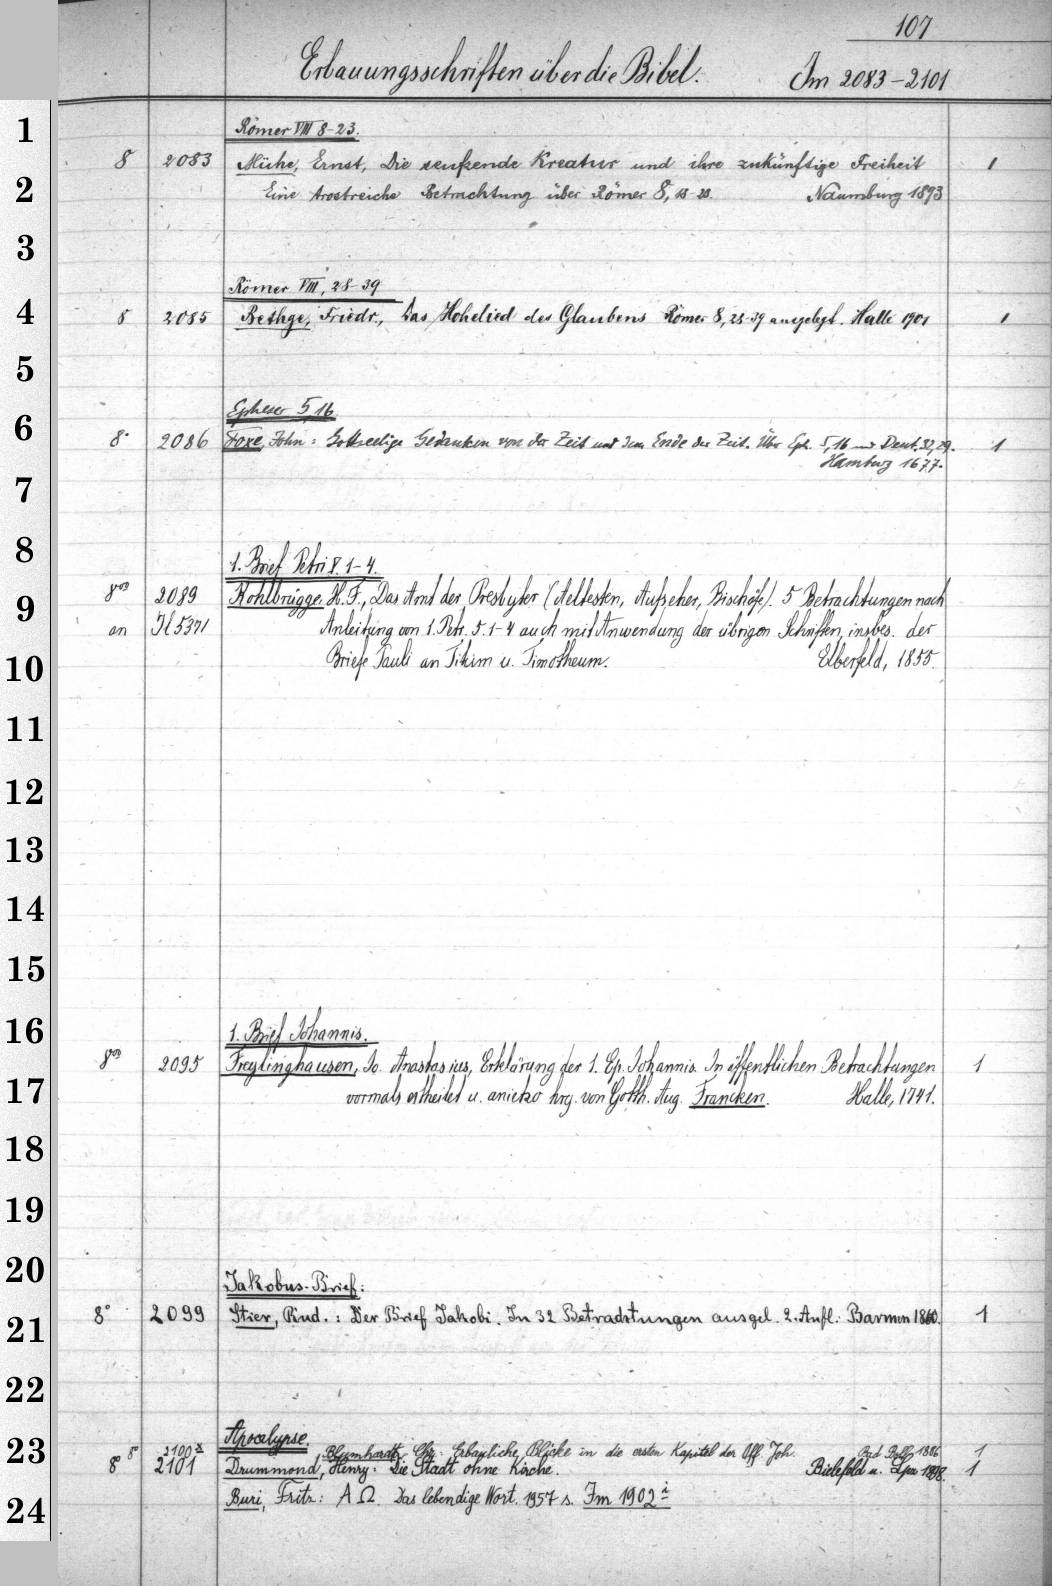 107
Erbauungsschriften über die Bibel. Im 2083-2101
1
Römer VIII 8-23.
8 2083 Mühe, Ernst, Die seufzende Kreatur und ihre zukünftige Freiheit 1
2
Eine trostreiche Betrachtung über Römer 8, 18-23. Naumburg 1893
3
Römer VIII, 28-39
4
8 2085 Bethge, Friedr., Das Hohelied des Glaubens Römer 8, 28-39 ausgelegt. Halle 1901 1
5
Epheser 5,16
6
8° 2086 Foxe, John: Gottseelige Gedanken von der Zeit und dem Ende der Zeit. Über Eph. 5,16 und Deut. 32,29. 1
Hamburg 1677.
7
8
1. Brief Petri V. 1-4.
8vo 2089 Kohlbrügge, H. F., Das Amt der Presbyter (Aeltesten, Aufseher, Bischöfe). 5 Betrachtungen nach
9
an 5371 Anleitung von 1. Petr. 5. 1-4 auch mit Anwendung der übrigen Schriften, insbes. der
10
Briefe Pauli an Titum u. Timotheum. Elberfeld, 1855.
11
12
13
14
15
16
1. Brief Johannis.
8vo 2095 Freylinghausen, Jo. Anastasius, Erklärung der 1. Ep. Johannis. In öffentlichen Betrachtungen 1
17
vormals ertheilet u. anietzo hrg. von Gotth. Aug. Francken. Halle, 1741.
18
19
20
Jakobus-Brief:
21
8° 2099 Stier, Rud.: Der Brief Jakobi. In 32 Betrachtungen ausgel. 2. Aufl. Barmen 1860. 1
22
Apocalypse.
23
8° 2100 Blumhardt, Chr. Erbauliche Blicke in die ersten Kapitel der Off. Joh. Bad Boll 1886 1
8° 2101 Drummond, Henry: Die Stadt ohne Kirche. Bielefeld u. Lpz 1898. 1
24
Buri, Fritz: A Ω. Das lebendige Wort. 1957 s. Im 1902 i